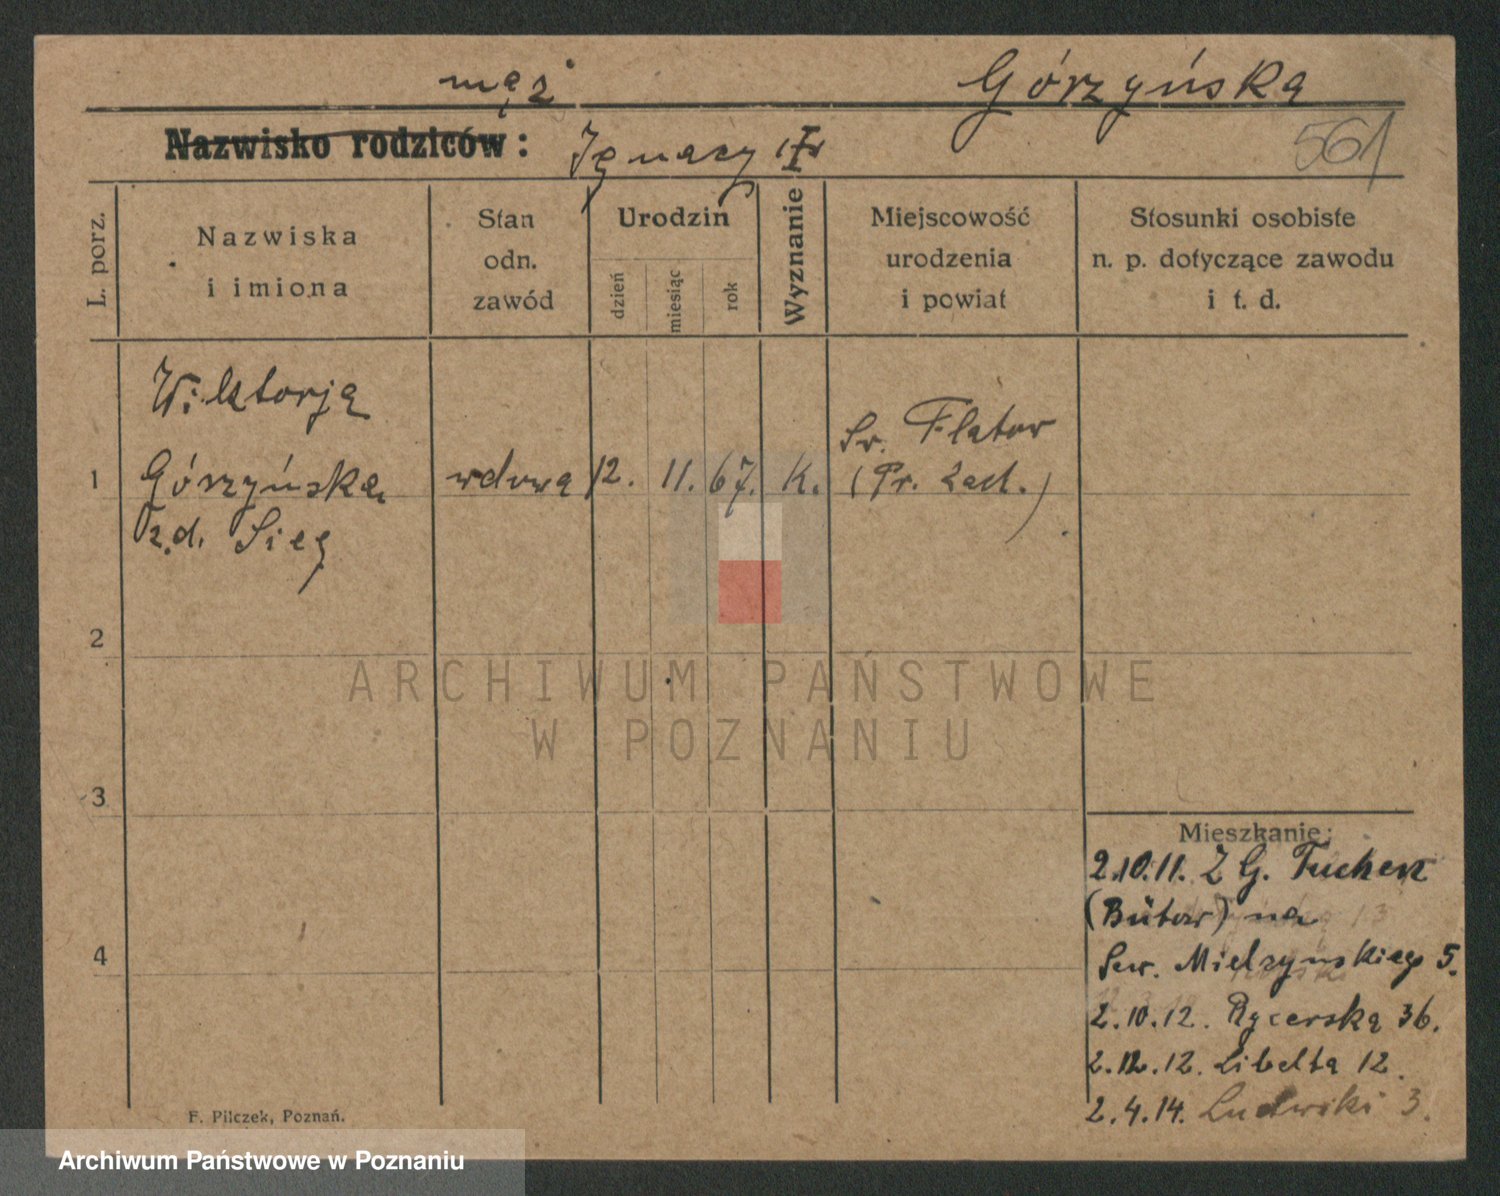 mąż Górzyńska
Nazwisko rodziców: Ignacy
561
L. porz.
Nazwiska
i imiona
Stan
odn.
zawód
Urodzin
dzień
miesiąc
rok
Wyznanie
Miejscowość
urodzenia
i powiat
Stosunki osobiste
n. p. dotyczące zawodu
i t. d.
Wiktorja
1 Górzyńska wdowa 12. 11. 67. K.
z.d. Sieg
Flatow
(Pr. Zach.)
2
3
4
Mieszkanie:
2.10.11. Z G. Tuchen
(Bütow) na
Sew. Mielżyńskieg 5.
2.10.12. Rycerska 36.
2.12.12. Libelta 12.
2.4.14. Ludwiki 3.
F. Pilczek, Poznań.
ARCHIWUM PAŃSTWOWE
W POZNANIU
Archiwum Państwowe w Poznaniu